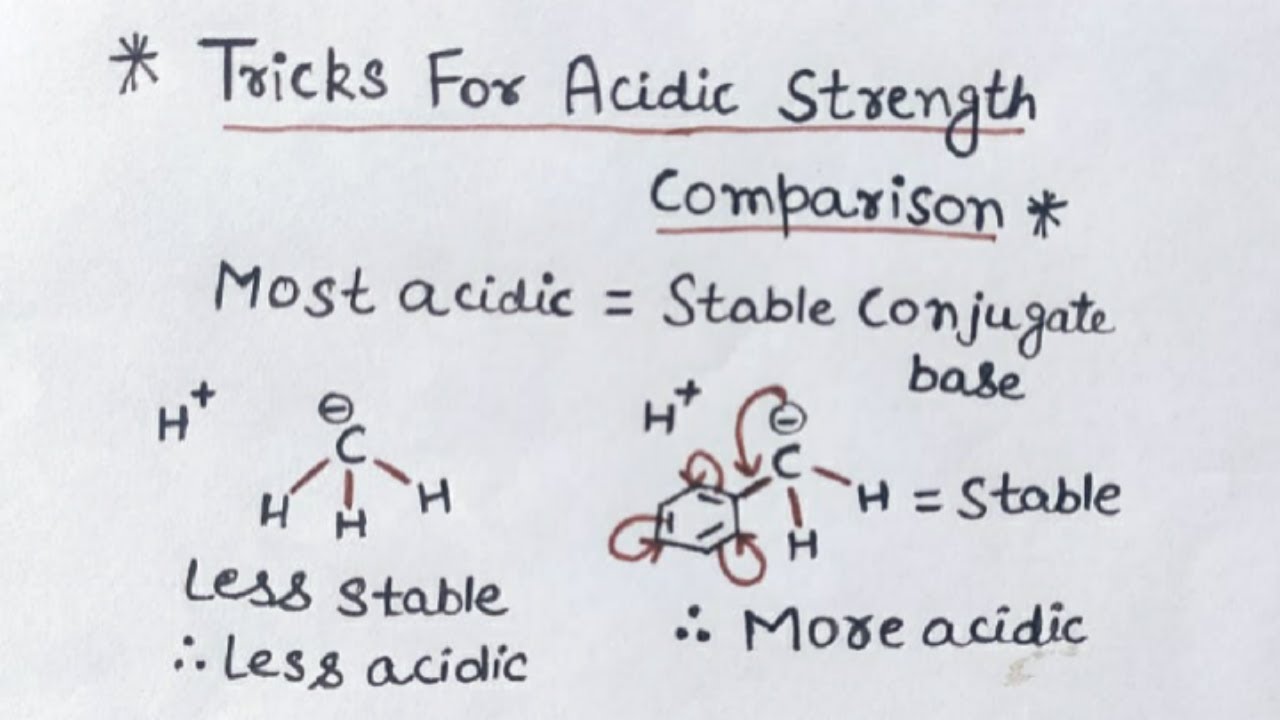 * Tricks For Acidic Strength
Comparison *
Most acidic = Stable Conjugate
base
H+
⊖
C
H H H
Less stable
∴ Less acidic
H+
⊖
C
H = Stable
H
∴ More acidic